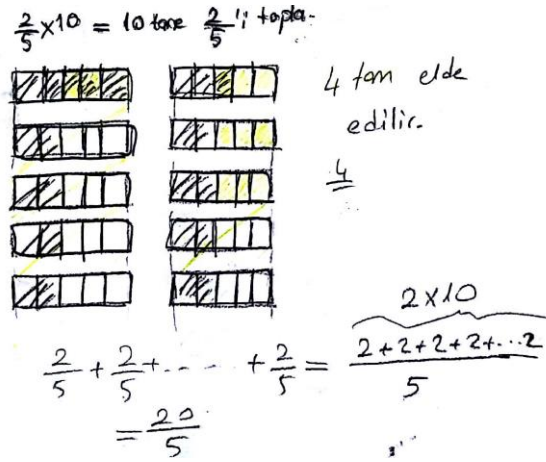 2/5 x 10 = 10 tane 2/5 'i topla.
4 tam elde
edilir.
4
2 x 10
2/5 + 2/5 + - - - - + 2/5 = 2 + 2 + 2 + 2 + ... 2 / 5
= 20/5